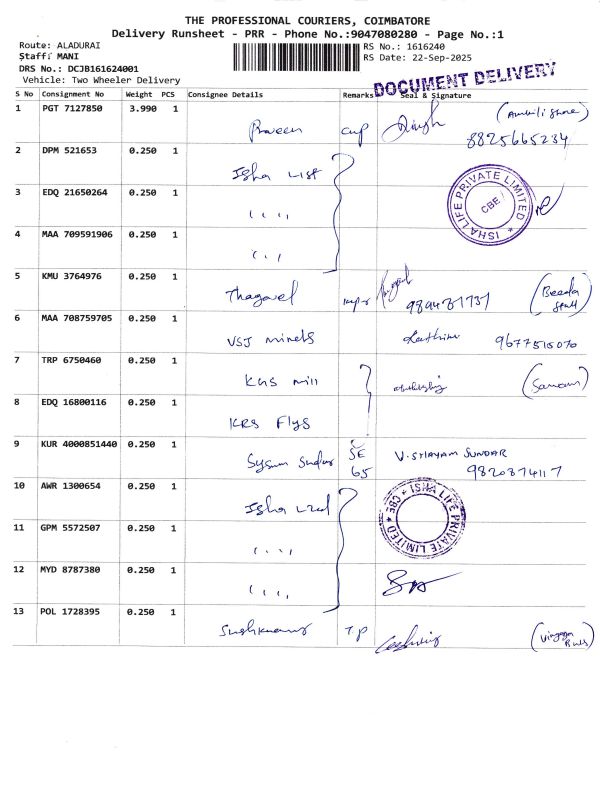 THE PROFESSIONAL COURIERS, COIMBATORE
Delivery Runsheet - PRR - Phone No.:9047080280 - Page No.:1
Route: ALADURAI
Staff: MANI
DRS No.: DCJB161624001
Vehicle: Two Wheeler Delivery
RS No.: 1616240
RS Date: 22-Sep-2025
DOCUMENT DELIVERY
S No Consignment No Weight PCS Consignee Details Remarks Seal & Signature
1 PGT 7127850 3.990 1 Praveen cup
8825665234
2 DPM 521653 0.250 1 Isha List
3 EDQ 21650264 0.250 1 " "
ISHA LIFE PRIVATE LIMITED CBE
4 MAA 709591906 0.250 1 " "
5 KMU 3764976 0.250 1 Thagavel 9894431737 (Beeda Stall)
6 MAA 708759705 0.250 1 VSJ minets 9677515070
7 TRP 6750460 0.250 1 KGS mill
8 EDQ 16800116 0.250 1 KRS Flys
9 KUR 4000851440 0.250 1 SE 65 V. SHYAM SUNDAR
9820874117
10 AWR 1300654 0.250 1 Isha
ISHA LIFE PRIVATE LIMITED CBE
11 GPM 5572507 0.250 1 " "
12 MYD 8787380 0.250 1 " "
13 POL 1728395 0.250 1 T.P